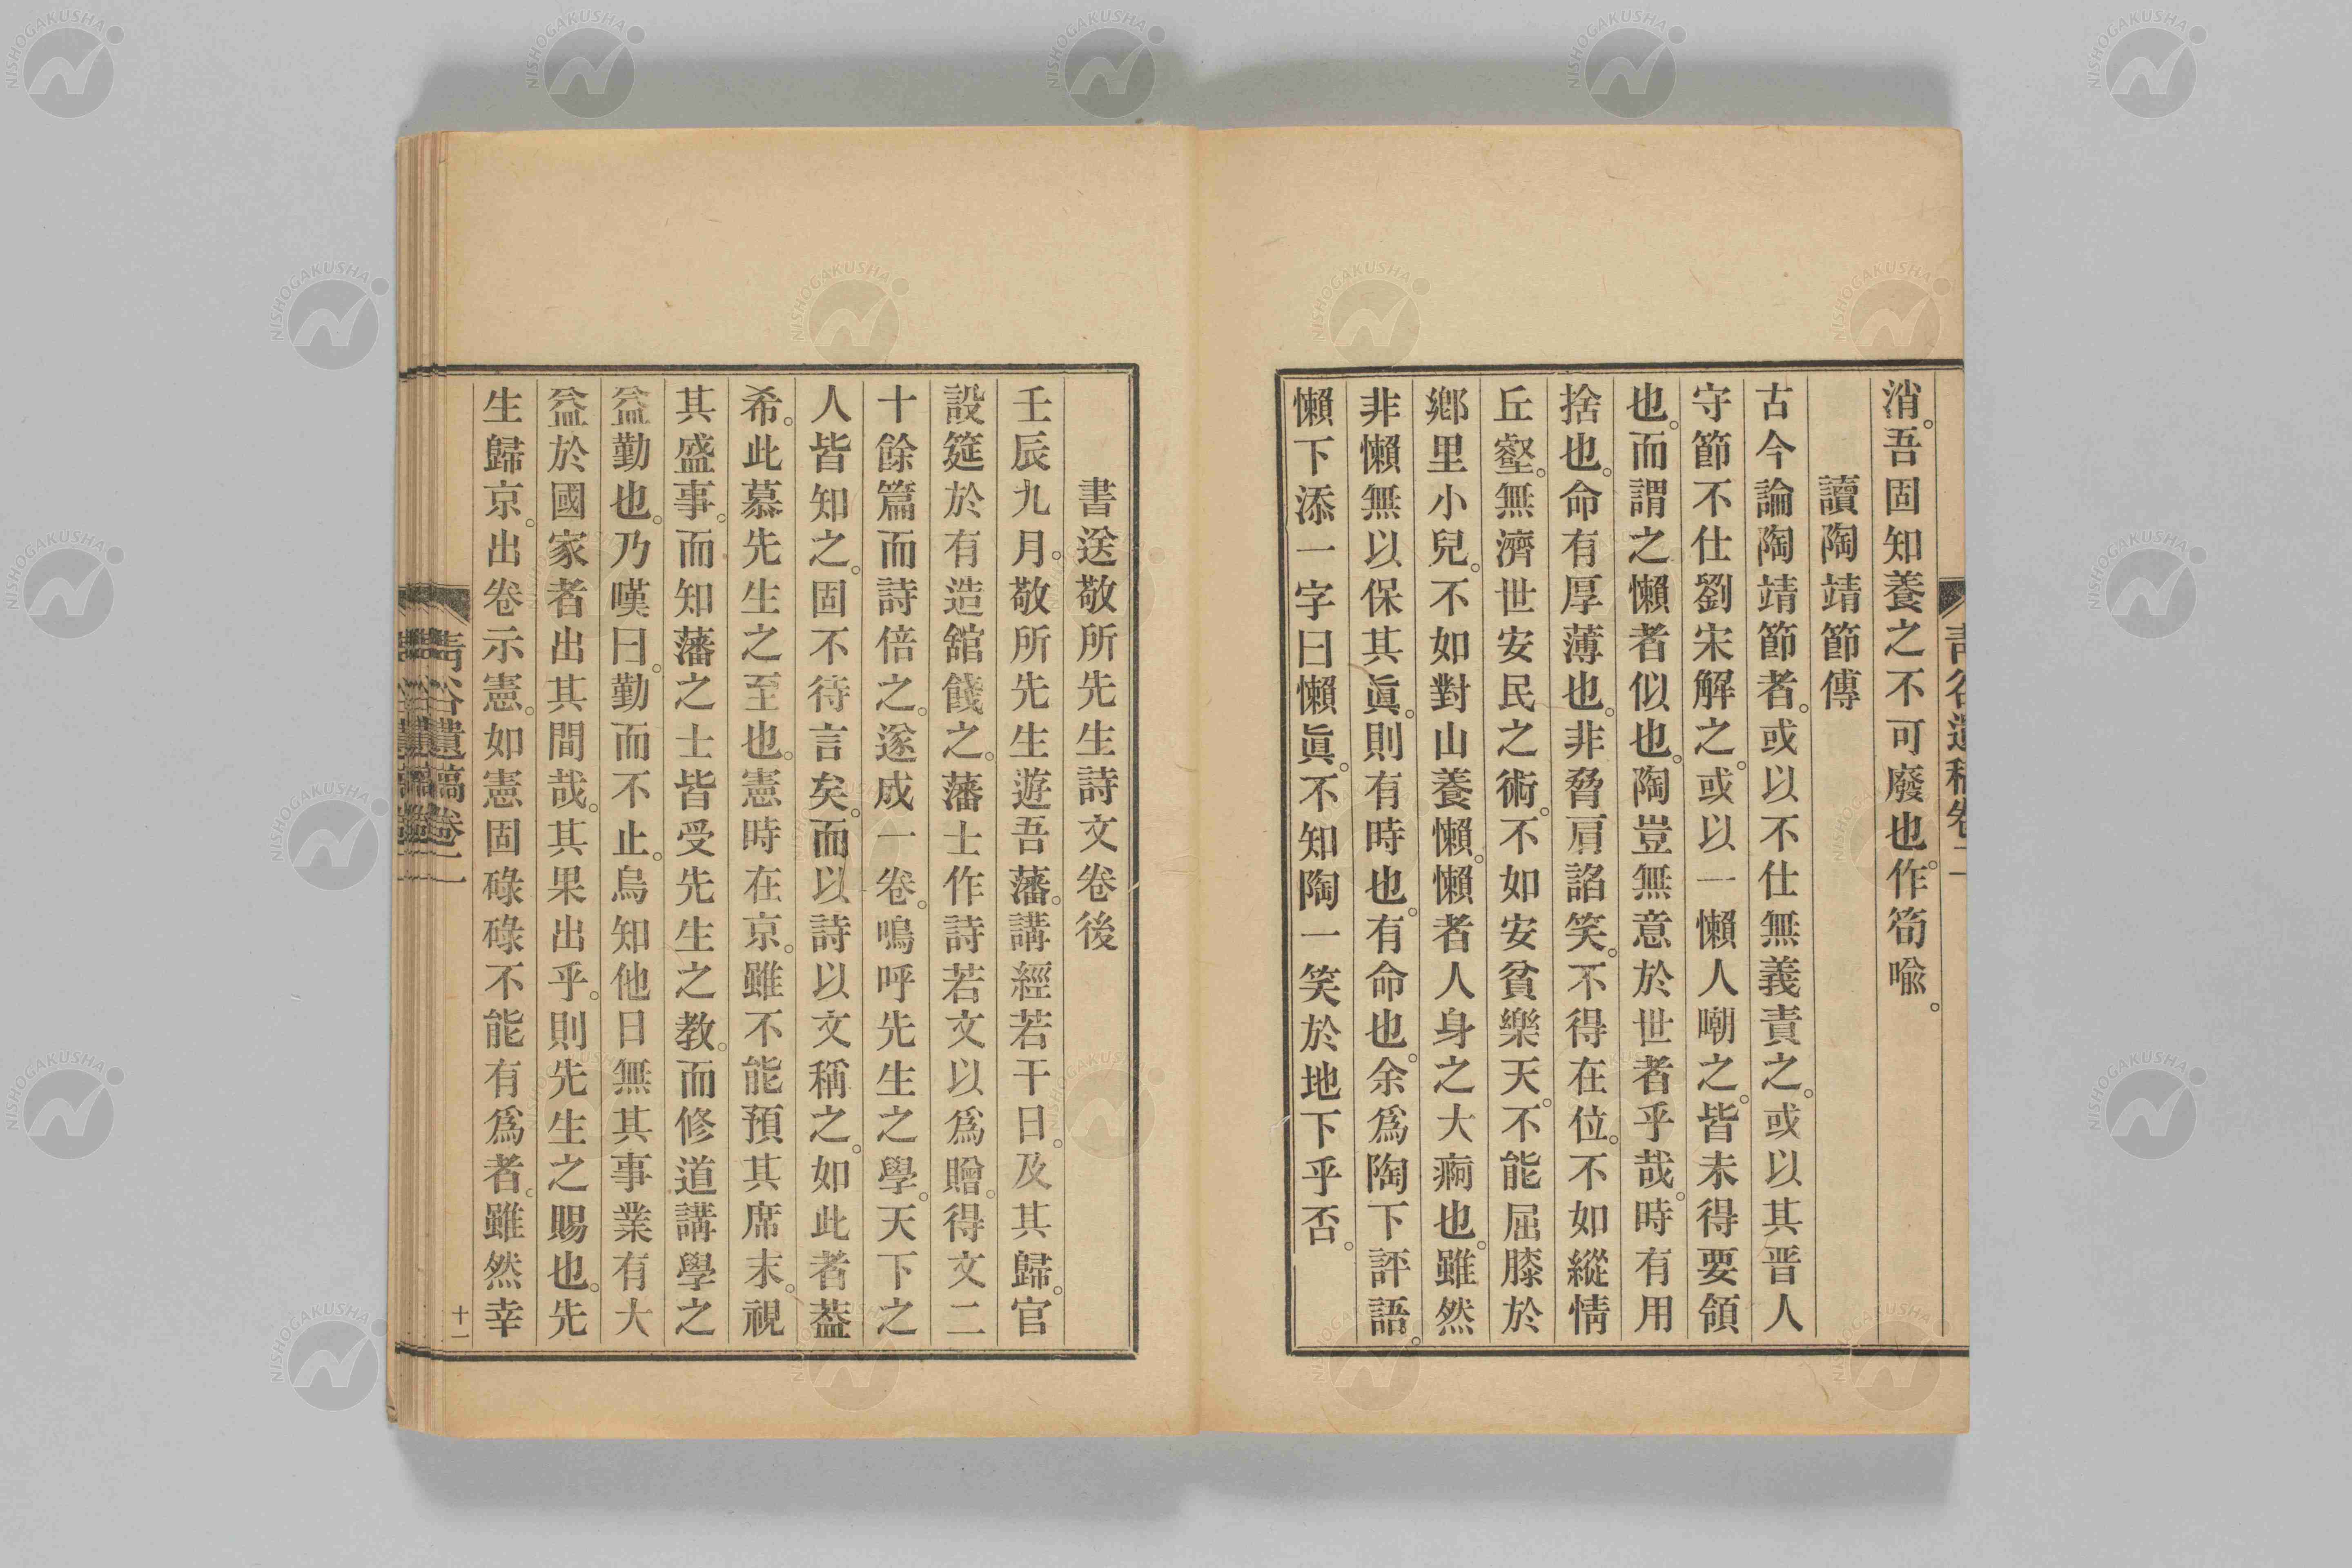 消。吾固知養之不可廢也。作筍喩。
讀陶靖節傳
古今論陶靖節者。或以不仕無義責之。或以其晋人
守節不仕劉宋解之。或以一懶人嘲之。皆未得要領
也。而謂之懶者似也。陶豈無意於世者乎哉。時有用
捨也。命有厚薄也。非脅肩諂笑。不得在位。不如縱情
丘壑。無濟世安民之術。不如安貧樂天。不能屈膝於
鄕里小兒。不如對山養懶。懶者人身之大痾也。雖然
非懶無以保其眞。則有時也。有命也。余爲陶下評語。
懶下添一字曰懶眞。不知陶一笑於地下乎否。
書送敬所先生詩文卷後
壬辰九月。敬所先生遊吾藩。講經若干日。及其歸。官
設筵於有造舘餞之。藩士作詩若文以爲贈。得文二
十餘篇而詩倍之。遂成一卷。嗚呼先生之學。天下之
人皆知之。固不待言矣。而以詩以文稱之。如此者葢
希。此慕先生之至也。憲時在京。雖不能預其席末。視
其盛事。而知藩之士皆受先生之教。而修道講學之
益勤也。乃嘆曰。勤而不止。烏知他日無其事業有大
益於國家者出其間哉。其果出乎。則先生之賜也。先
生歸京。出卷示憲。如憲固碌碌不能有爲者。雖然幸
青谷遺稿卷二
十一
NISHOGAKUSHA